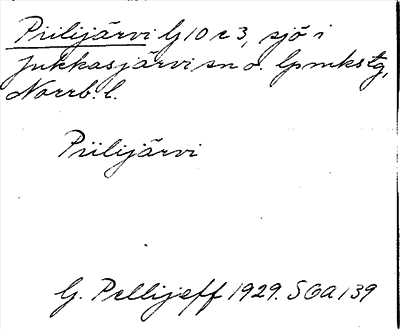 Piilijärvi lj 10 c 3, sjö i
Jukkasjärvi sn o. lpmkstg,
Norrb. l.
Piilijärvi
G. Pellijeff 1929. SOA 139